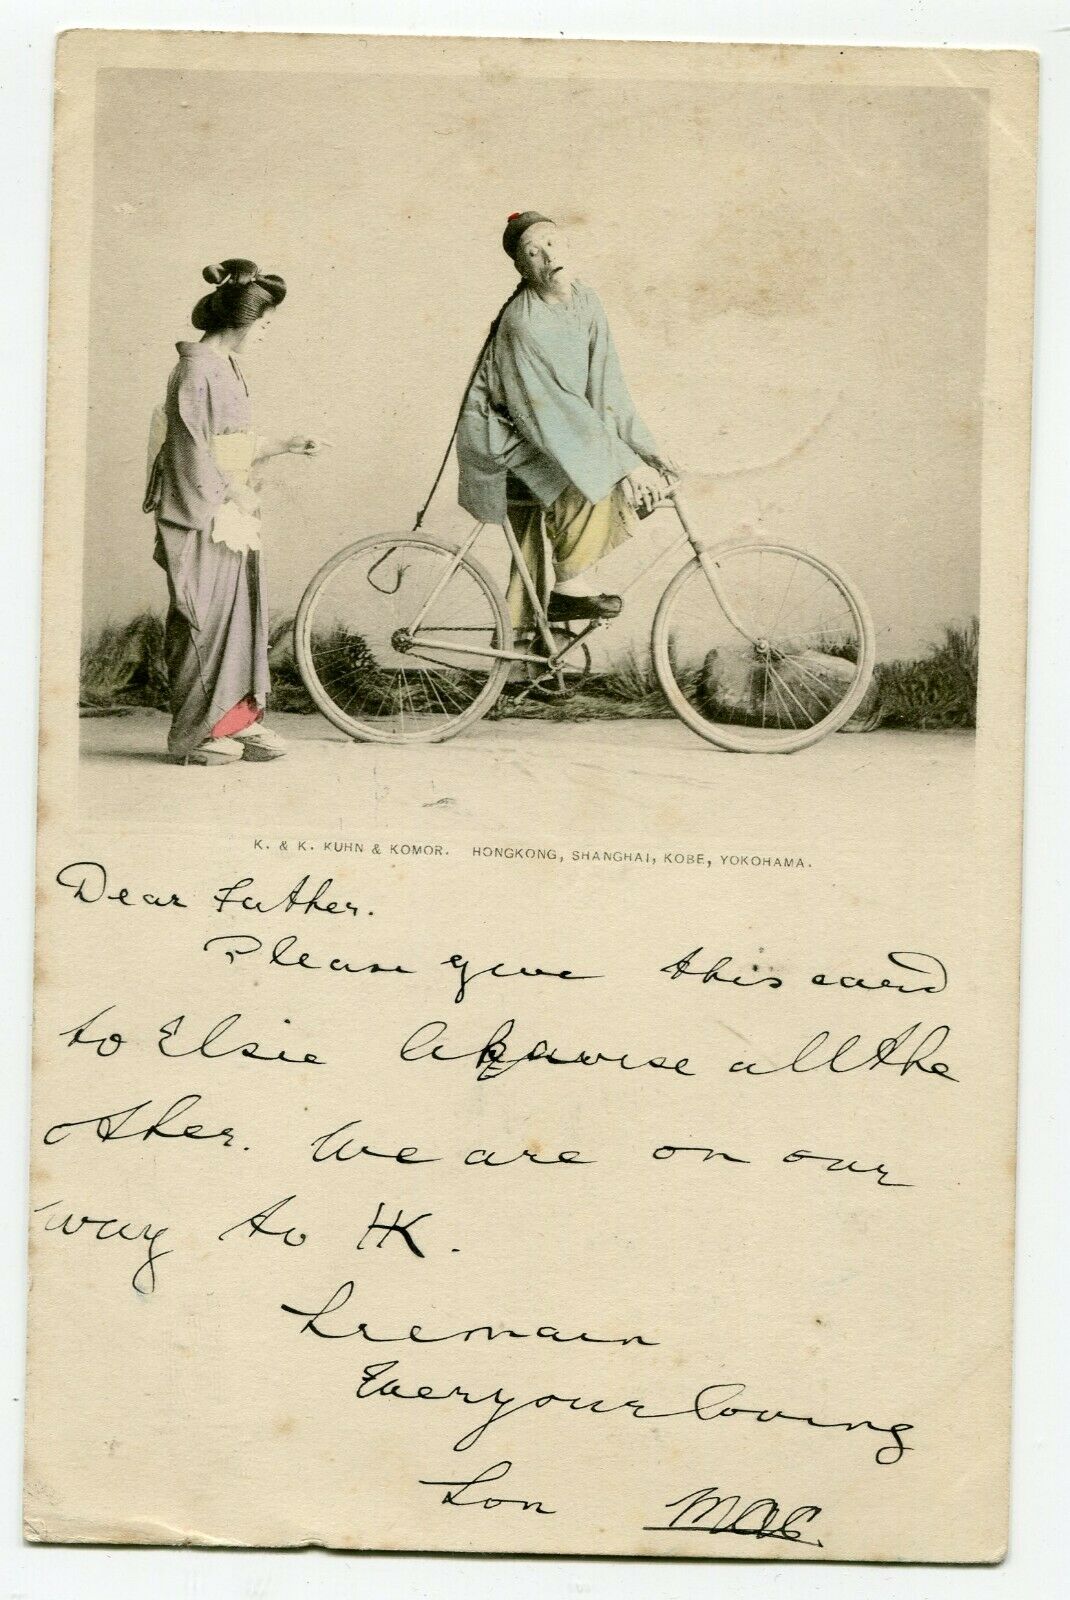 K. & K. KUHN & KOMOR. HONGKONG, SHANGHAI, KOBE, YOKOHAMA.
Dear Father.
Please give this card
to Elsie likewise all the
other. We are on our
way to HK.
I remain
Ever your loving
Son Mac.